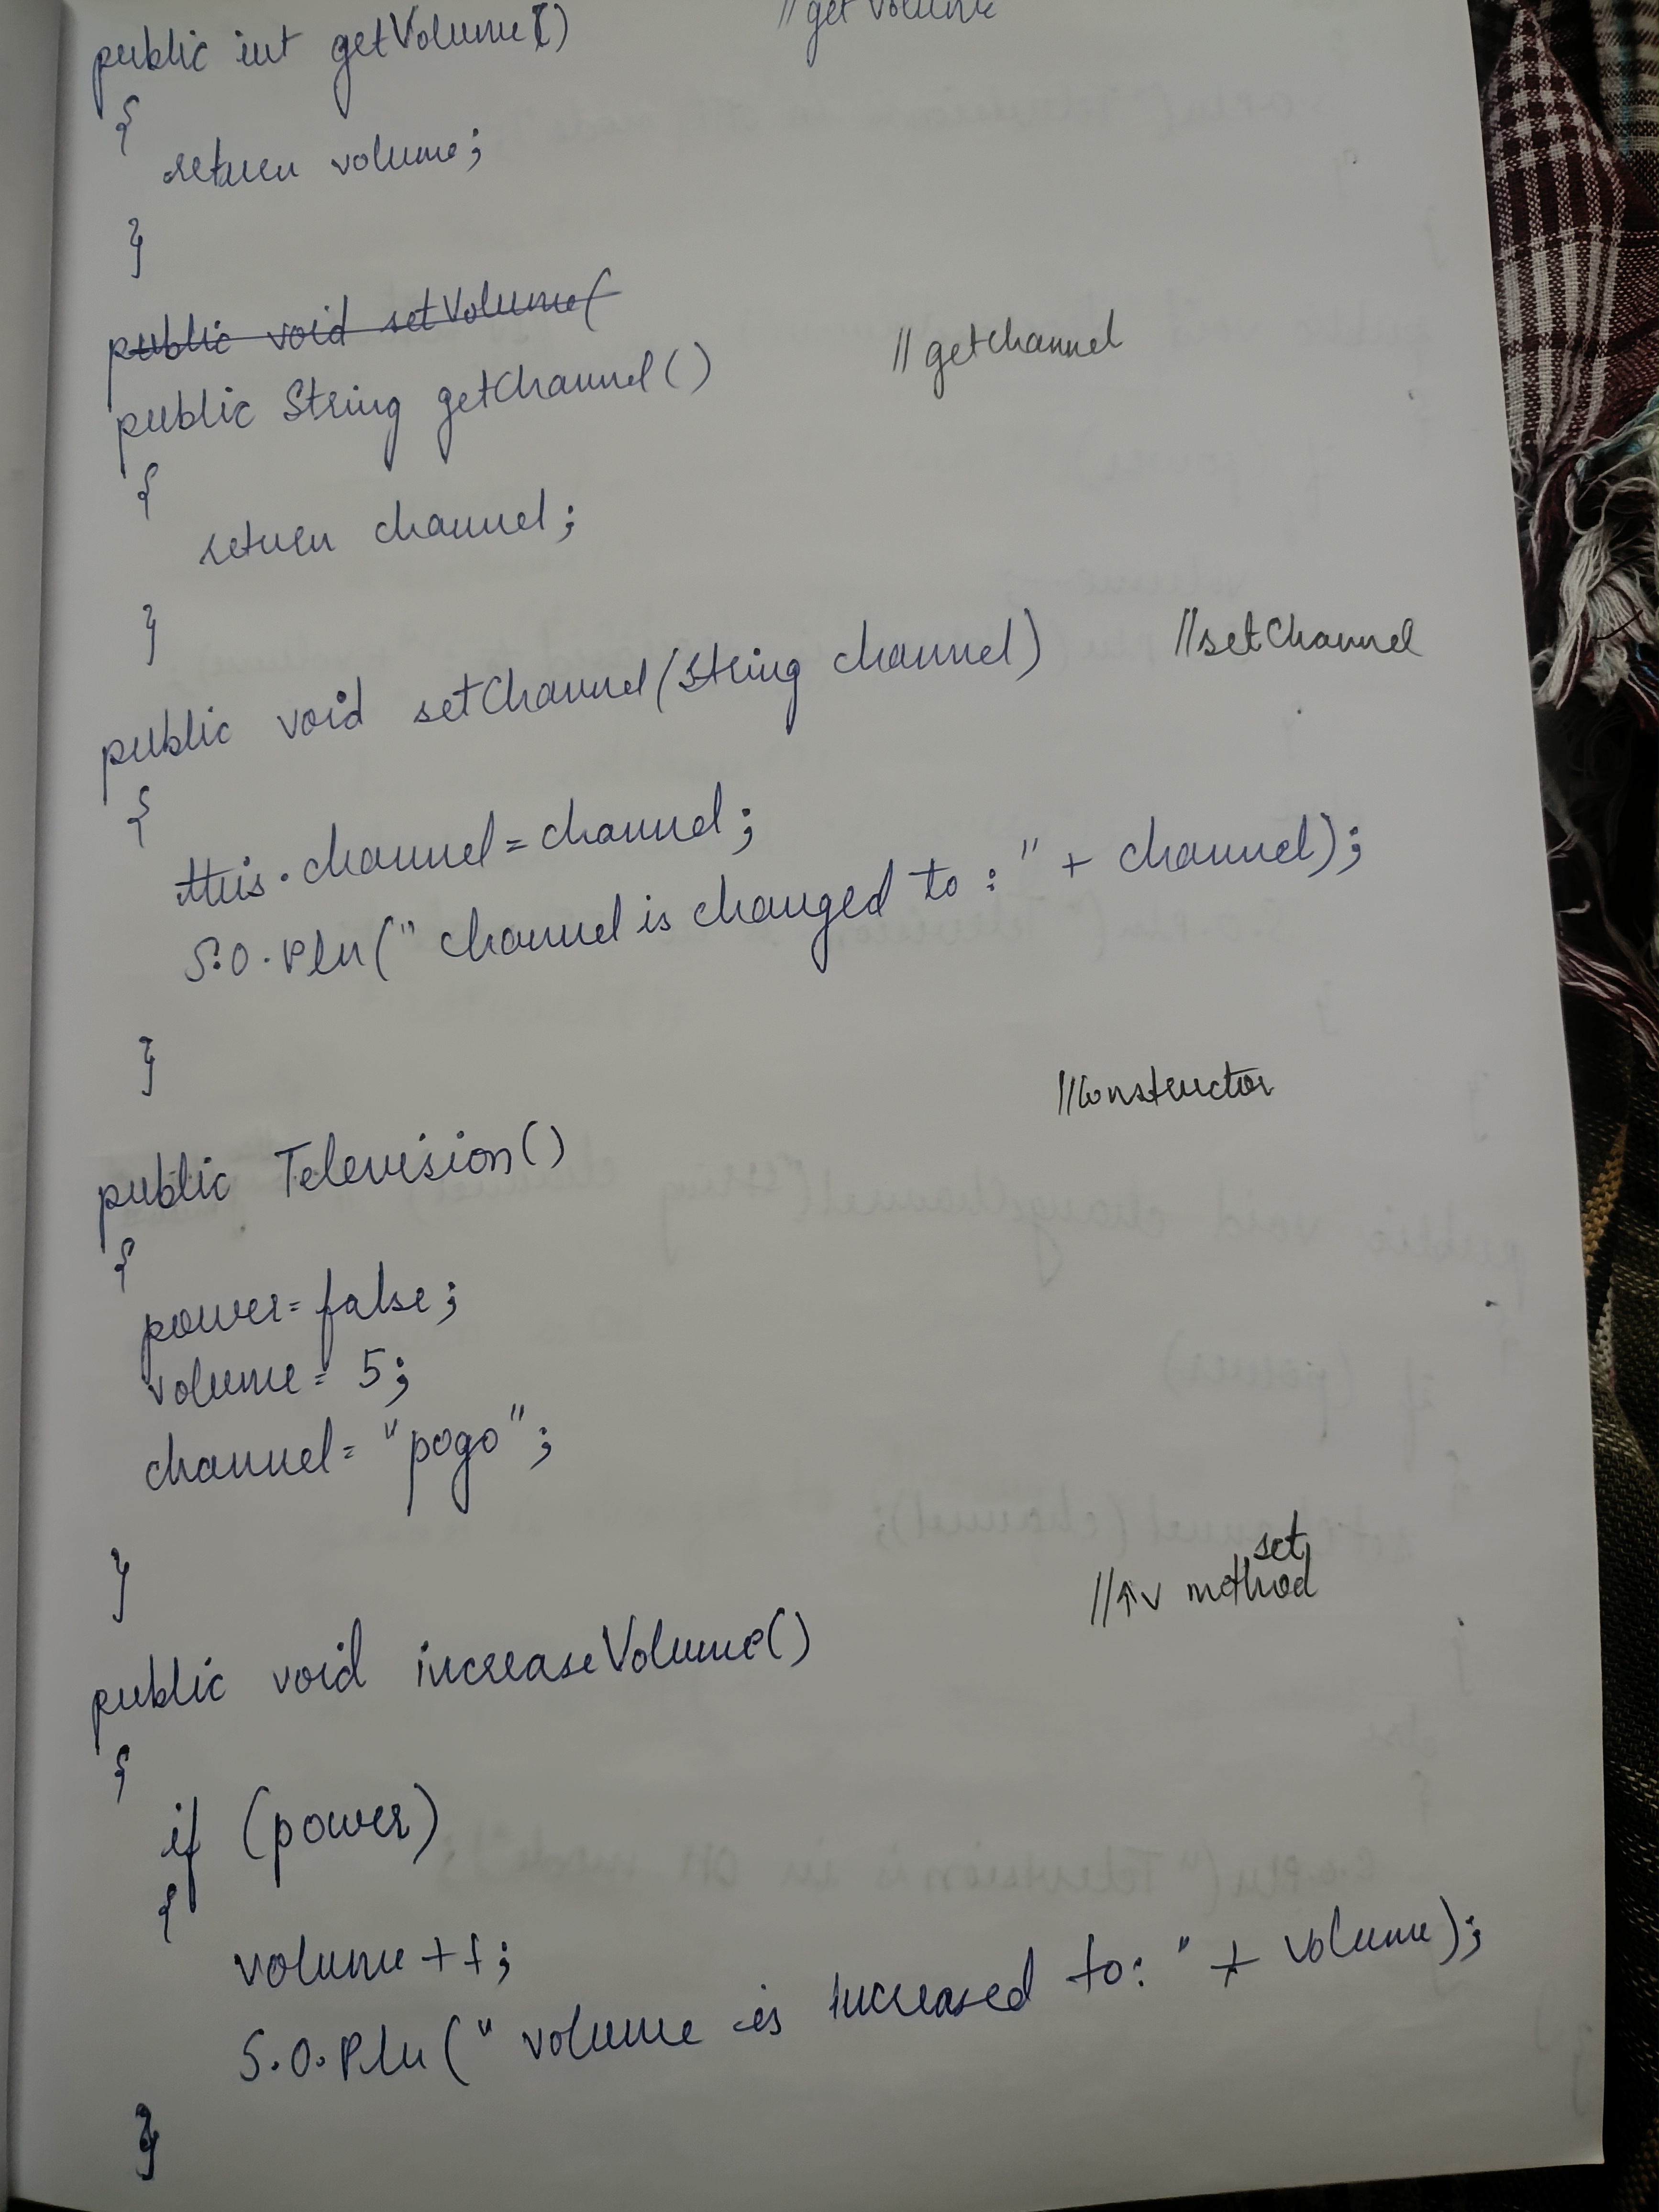 public int getVolume() //get volume
{
return volume;
}
public void setVolume(
public String getChannel() //getchannel
{
return channel;
}
public void setChannel(String channel) //setChannel
{
this.channel=channel;
S.O.Pln("channel is changed to:" + channel);
}
//Constructor
public Television()
{
power=false;
volume= 5;
channel= "pogo";
}
set
//↑v method
public void increaseVolume()
{
if (power)
{
volume++;
S.O.Pln("volume is increased to:" + volume);
}